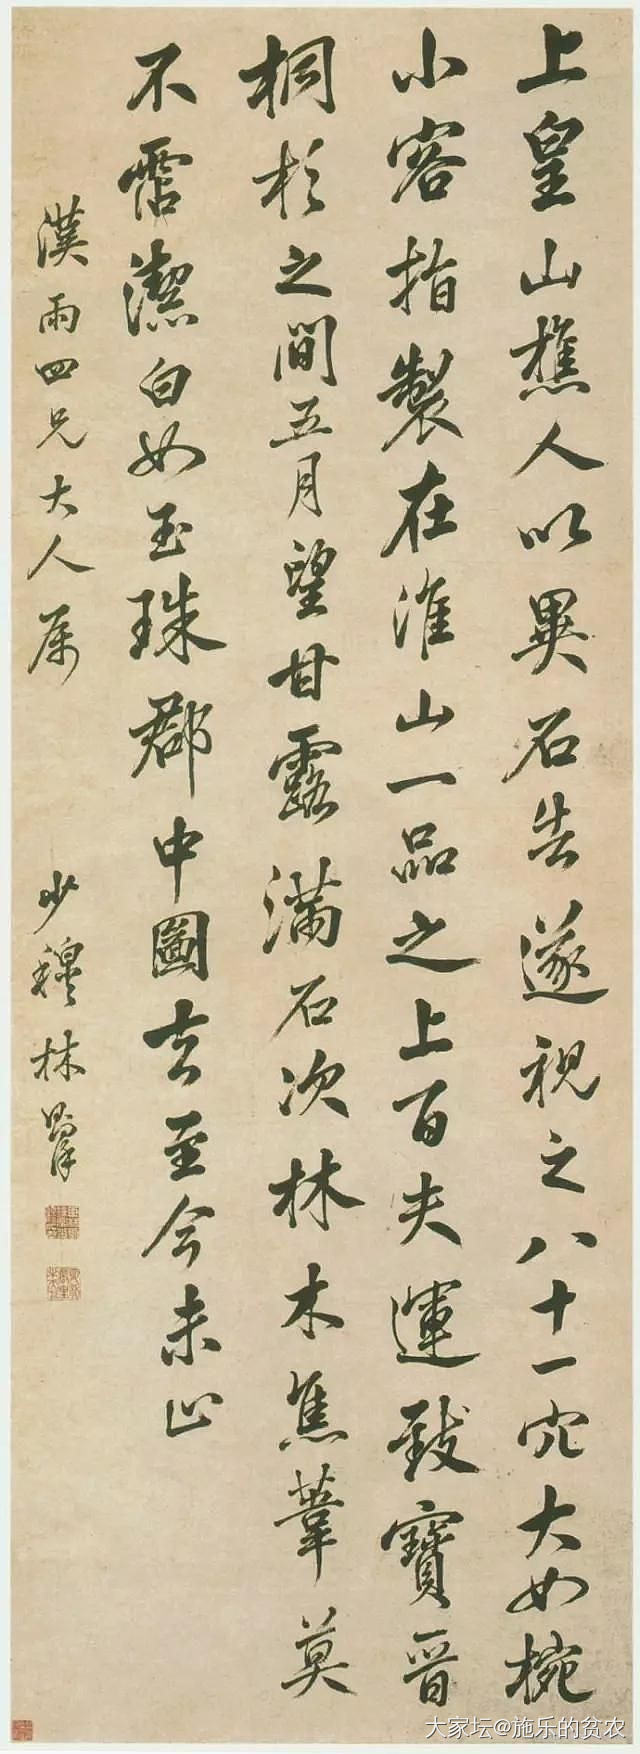 上皇山樵人以異石告遂視之八十一穴大如椀
小容指製在淮山一品之上百夫運致寶晉
桐杉之間五月望甘露滿石次林木焦葦莫
不霑潔白如玉珠郡中圖去至今未止
漢雨四兄大人属
少穆林
大家坛@施乐的贫农